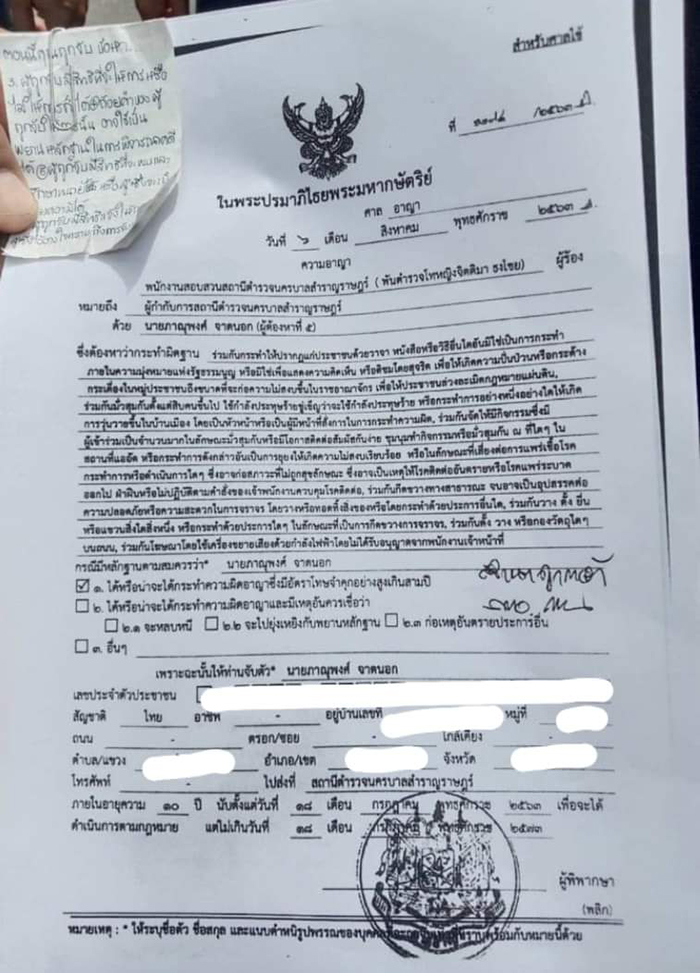 สำหรับศาลใช้
ที่ /๒๕๖๓
ในพระปรมาภิไธยพระมหากษัตริย์
ศาล อาญา
วันที่ ๖ เดือน สิงหาคม พุทธศักราช ๒๕๖๓
ความอาญา
พนักงานสอบสวนสถานีตำรวจนครบาลสำราญราษฎร์ ( พันตำรวจโทหญิงจิตติมา ธงไชย) ผู้ร้อง
หมายถึง ผู้กำกับการสถานีตำรวจนครบาลสำราญราษฎร์
ด้วย นายภาณุพงศ์ จาดนอก (ผู้ต้องหาที่ ๕)
ซึ่งต้องหาว่ากระทำผิดฐาน ร่วมกันกระทำให้ปรากฏแก่ประชาชนด้วยวาจา หนังสือหรือวิธีอื่นใดอันมิใช่เป็นการกระทำ
ภายในความมุ่งหมายแห่งรัฐธรรมนูญ หรือมิใช่เพื่อแสดงความคิดเห็น หรือติชมโดยสุจริต เพื่อให้เกิดความปั่นป่วนหรือกระด้าง
กระเดื่องในหมู่ประชาชนถึงขนาดที่จะก่อความไม่สงบขึ้นในราชอาณาจักร เพื่อให้ประชาชนล่วงละเมิดกฎหมายแผ่นดิน,
ร่วมกันมั่วสุมกันตั้งแต่สิบคนขึ้นไป ใช้กำลังประทุษร้ายขู่เข็ญว่าจะใช้กำลังประทุษร้าย หรือกระทำการอย่างหนึ่งอย่างใดให้เกิด
การวุ่นวายขึ้นในบ้านเมือง โดยเป็นหัวหน้าหรือเป็นผู้มีหน้าที่สั่งการในการกระทำความผิด, ร่วมกันจัดให้มีกิจกรรมซึ่งมี
ผู้เข้าร่วมเป็นจำนวนมากในลักษณะมั่วสุมกันหรือมีโอกาสติดต่อสัมผัสกันง่าย ชุมนุมทำกิจกรรมหรือมั่วสุมกัน ณ ที่ใดๆ ใน
สถานที่แออัด หรือกระทำการดังกล่าวอันเป็นการยุยงให้เกิดความไม่สงบเรียบร้อย หรือในลักษณะที่เสี่ยงต่อการแพร่เชื้อโรค
กระทำการหรือดำเนินการใดๆ ซึ่งอาจก่อสภาวะที่ไม่ถูกสุขลักษณะ ซึ่งอาจเป็นเหตุให้โรคติดต่ออันตรายหรือโรคแพร่ระบาด
ออกไป ฝ่าฝืนหรือไม่ปฏิบัติตามคำสั่งของเจ้าพนักงานควบคุมโรคติดต่อ, ร่วมกันกีดขวางทางสาธารณะ จนอาจเป็นอุปสรรคต่อ
ความปลอดภัยหรือความสะดวกในการจราจร โดยวางหรือทอดทิ้งสิ่งของหรือโดยกระทำด้วยประการอื่นใด, ร่วมกันวาง ตั้ง ยื่น
หรือแขวนสิ่งใดสิ่งหนึ่ง หรือกระทำด้วยประการใดๆ ในลักษณะที่เป็นการกีดขวางการจราจร, ร่วมกันตั้ง วาง หรือกองวัตถุใดๆ
บนถนน, ร่วมกันโฆษณาโดยใช้เครื่องขยายเสียงด้วยกำลังไฟฟ้าโดยไม่ได้รับอนุญาตจากพนักงานเจ้าหน้าที่
กรณีมีหลักฐานตามสมควรว่า* นายภาณุพงศ์ จาดนอก
๑. ได้หรือน่าจะได้กระทำความผิดอาญาซึ่งมีอัตราโทษจำคุกอย่างสูงเกินสามปี
๒. ได้หรือน่าจะได้กระทำความผิดอาญาและมีเหตุอันควรเชื่อว่า
๒.๑ จะหลบหนี ๒.๒ จะไปยุ่งเหยิงกับพยานหลักฐาน ๒.๓ ก่อเหตุอันตรายประการอื่น
๓. อื่นๆ
เพราะฉะนั้นให้ท่านจับตัว* นายภาณุพงศ์ จาดนอก
เลขประจำตัวประชาชน
สัญชาติ ไทย อาชีพ - อยู่บ้านเลขที่ หมู่ที่
ถนน - ตรอก/ซอย - ใกล้เคียง -
ตำบล/แขวง อำเภอ/เขต จังหวัด
โทรศัพท์ - ไปส่งที่ สถานีตำรวจนครบาลสำราญราษฎร์
ภายในอายุความ ๑๐ ปี นับตั้งแต่วันที่ ๑๘ เดือน กรกฎาคม พุทธศักราช ๒๕๖๓ เพื่อจะได้
ดำเนินการตามกฎหมาย แต่ไม่เกินวันที่ ๑๘ เดือน กรกฎาคม พุทธศักราช ๒๕๗๓
ผู้พิพากษา
(พลิก)
หมายเหตุ : * ให้ระบุชื่อตัว ชื่อสกุล และแนบตำหนิรูปพรรณของบุคคล